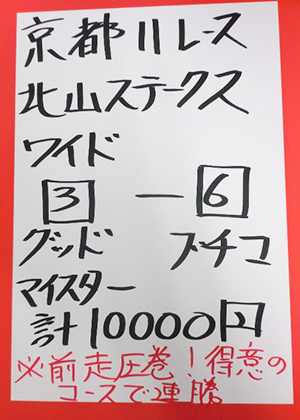 京都11レース
北山ステークス
ワイド
3 ― 6
グッド ブチコ
マイスター
計10000円
※前走圧巻!得意の
コースで連勝